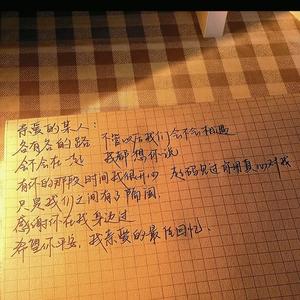 亲爱的某人：
各有各的路 不管以后我们会不会相遇
会不会在一起 我都想你说
有你的那段时间我很开心 起码见过你用真心对我
只是我们之间有了隔阂
感谢你在我身边过
希望你平安，我亲爱的最佳回忆.